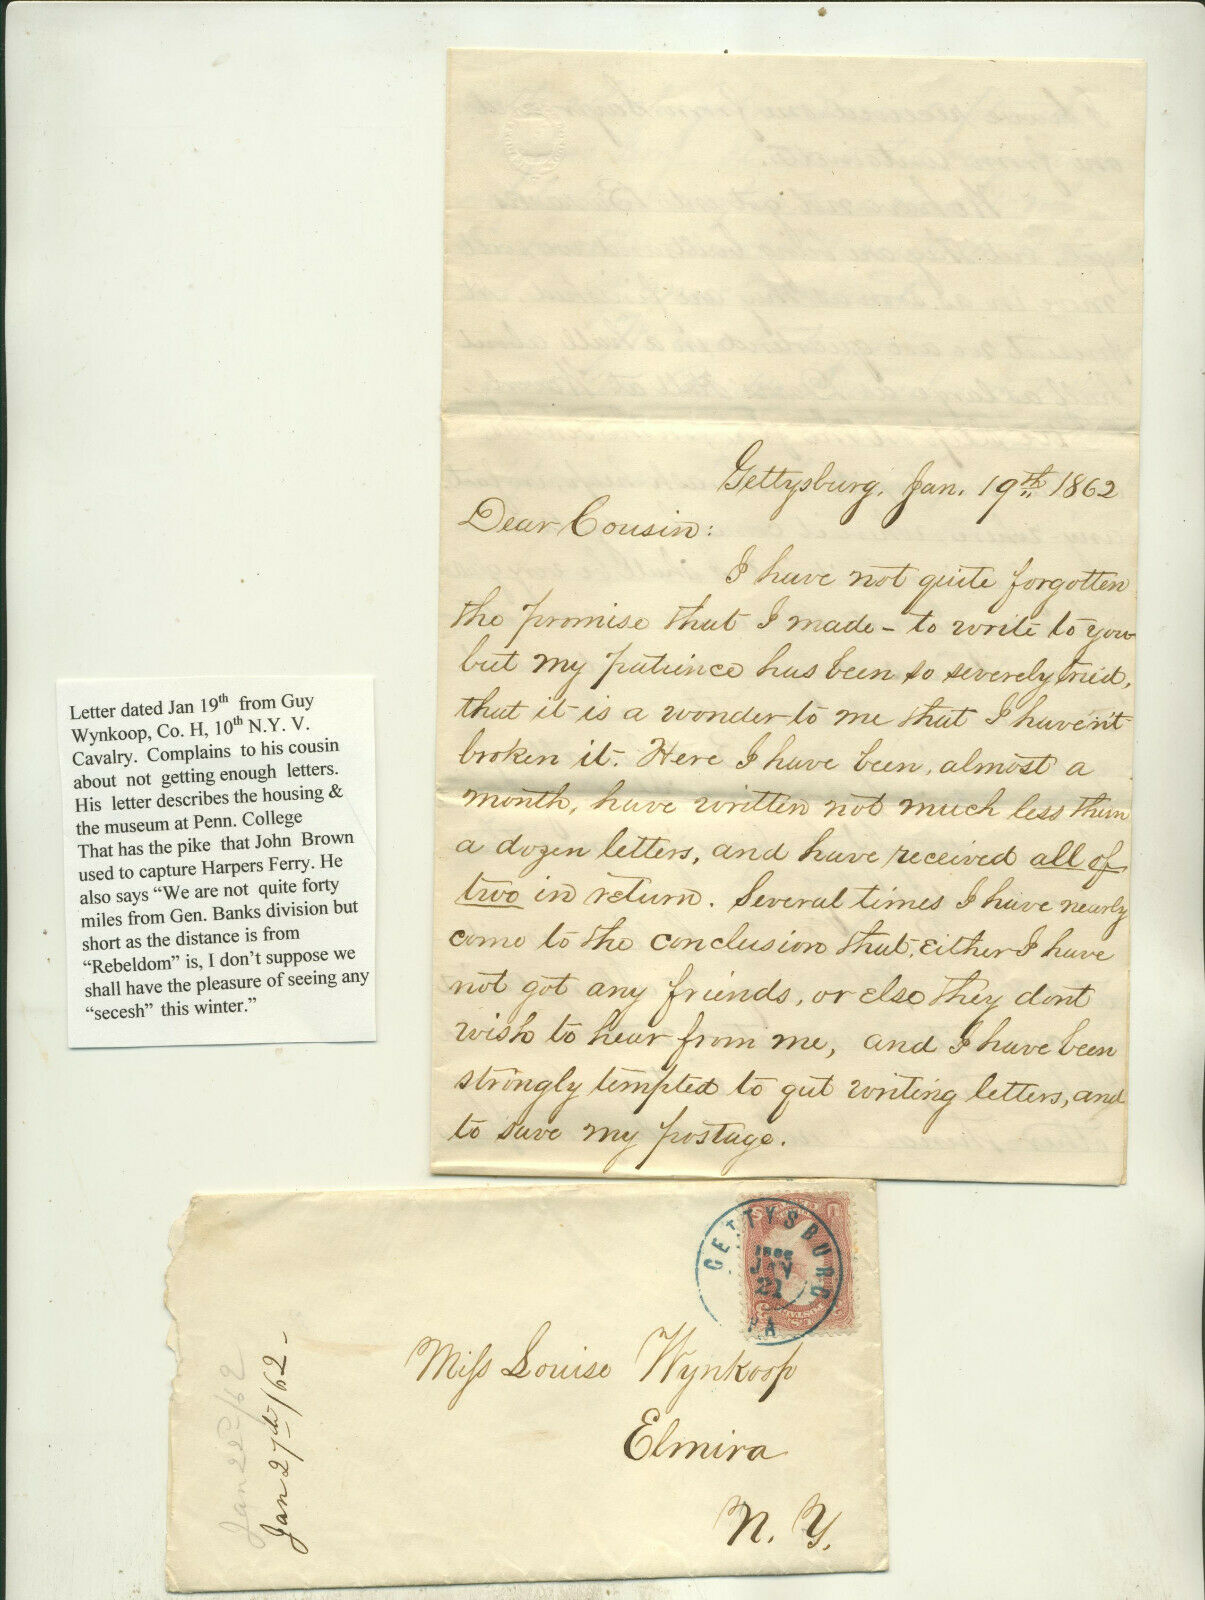 Gettysburg, Jan. 19th 1862
Dear Cousin:
I have not quite forgotten
the promise that I made - to write to you
but my patience has been so severely tried,
that it is a wonder to me that I haven't
broken it. Here I have been, almost a
month, have written not much less than
a dozen letters, and have received all of
two in return. Several times I have nearly
come to the conclusion that, either I have
not got any friends, or else they dont
wish to hear from me, and I have been
stringly tempted to qut writing letters, and
to save my postage.
Letter dated Jan 19th from Guy
Wynkoop, Co. H, 10th N.Y. V.
Cavalry. Complains to his cousin
about not getting enough letters.
His letter describes the housing &
the museum at Penn. College
That has the pike that John Brown
used to capture Harpers Ferry. He
also says "We are not quite forty
miles from Gen. Banks division but
short as the distance is from
"Rebeldom" is, I don't suppose we
shall have the pleasure of seeing any
"secesh" this winter."
GETTYSBURG
21
PA
Miss Louise Wynkoop
Elmira
N. Y.
Jan 22d/62
Jan 27th/62 -